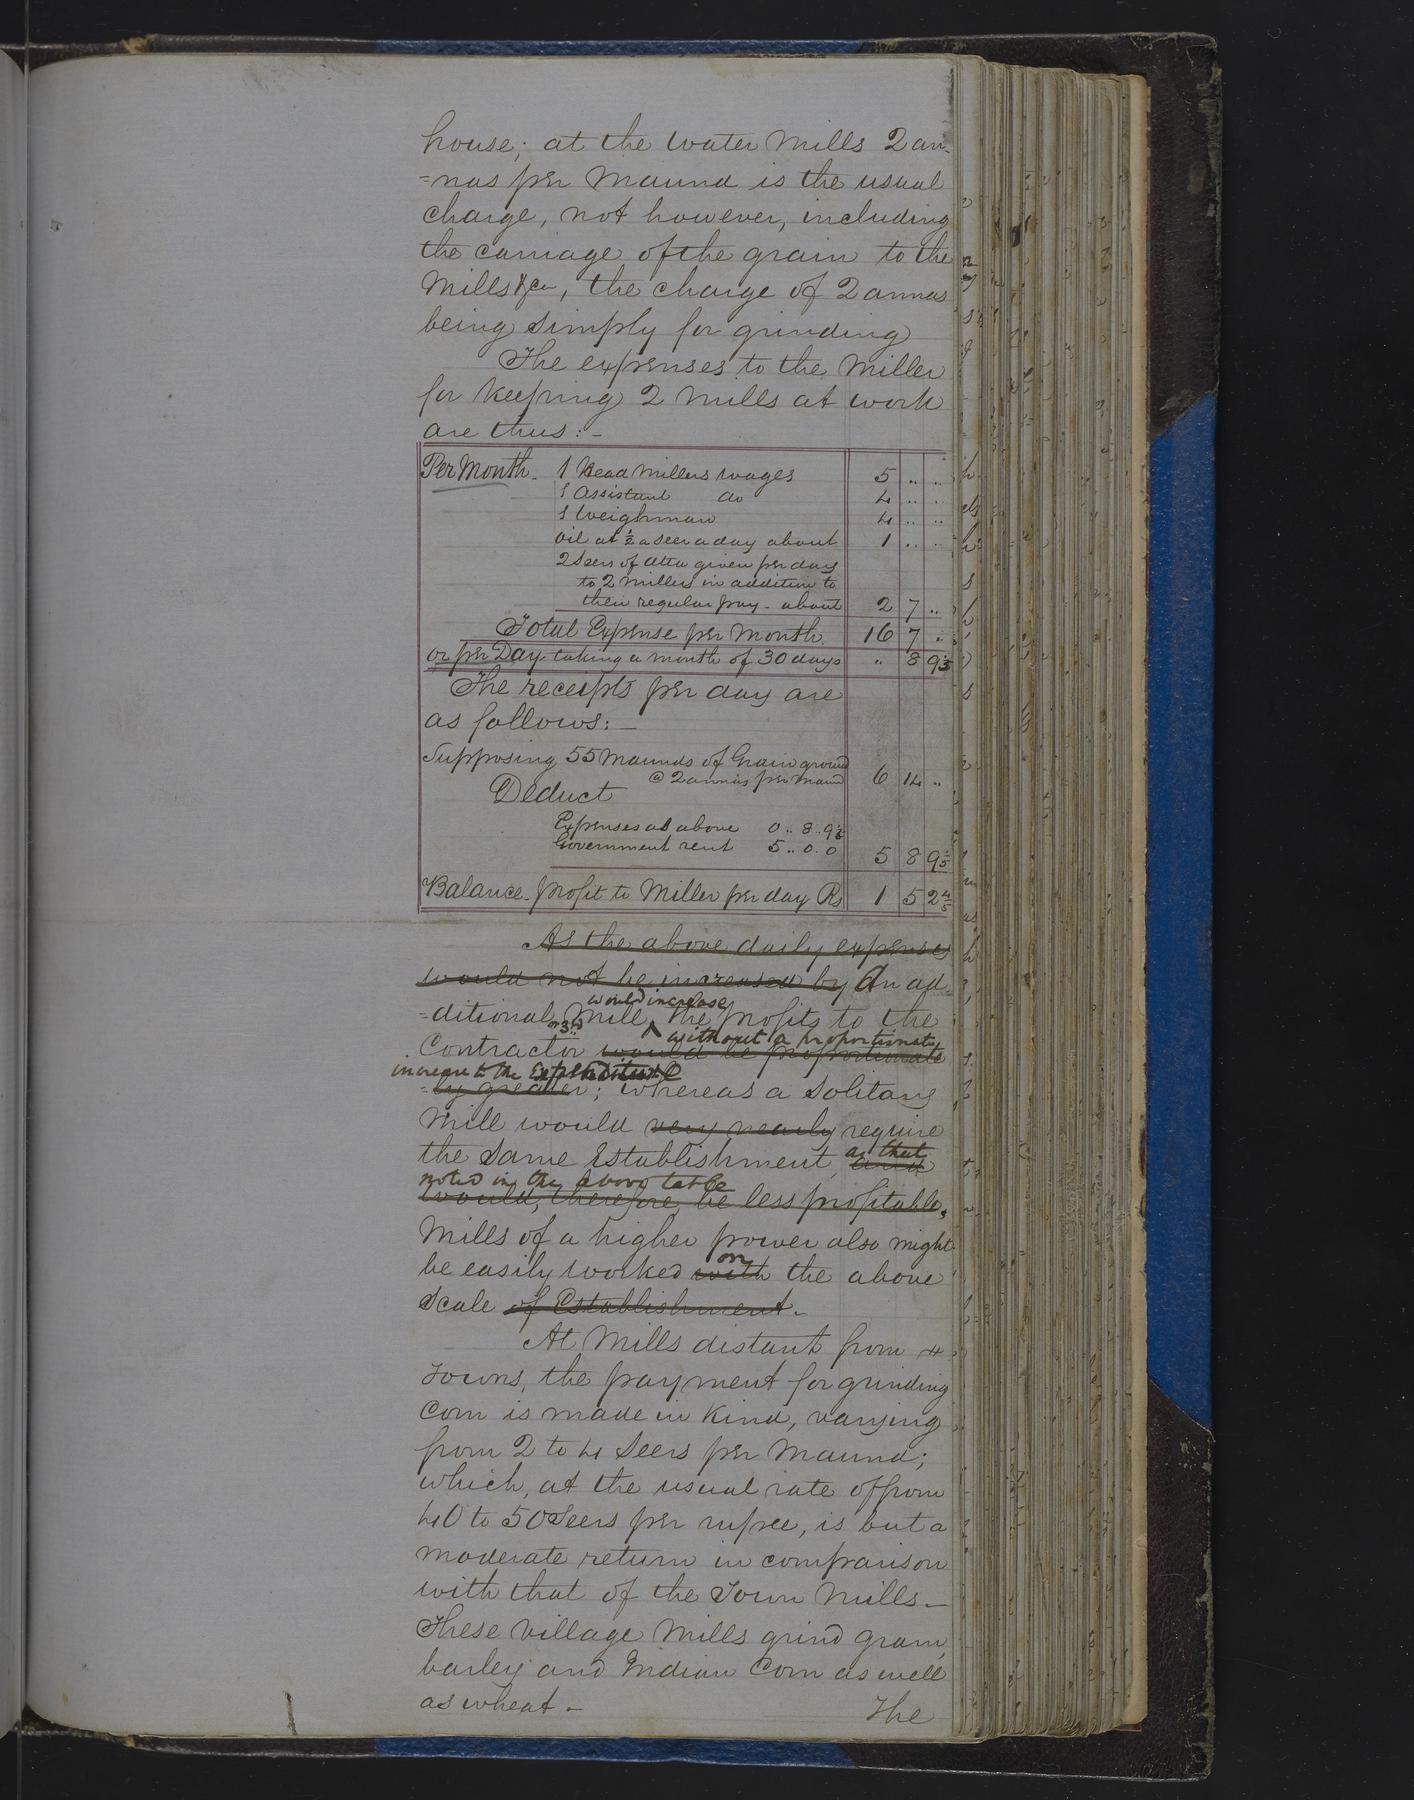 house; at the water Mills 2 an-
=nas per Maund is the usual
charge, not however, including
the carriage of the grain to the
Mills &ca, the charge of 2 annas
being simply for grinding
The expenses to the Miller
for keeping 2 Mills at work
are thus:-
Per Month. 1 Head Millers wages 5 .. ..
1 Assistant do 4 .. ..
1 Weighman 4 .. ..
Oil at ½ a seer a day about 1 .. ..
2 Seers of Atta given per day
to 2 Millers in addition to
their regular pay - about 2 7 ..
Total Expense per Month 16 7 ..
or per Day taking a month of 30 days .. 8 9 1/5
The receipts per day are
as follows:-
Supposing 55 Maunds of Grain ground
@ 2 annas per Maund 6 14 ..
Deduct
Expenses as above 0 .. 8 .. 9 1/5
Government rent 5 .. 0 . 0 5 8 9 1/5
Balance profit to Miller per day Rs 1 5 2 4/5
As the above daily expenses
would not be increased by An ad
would increase
=ditional Mill, the profits to the
or 3rd without a proportionate
Contractor would be proportionate
increase to the Expenditure
=ly greater; whereas a Solitary
Mill would very nearly require
the same Establishment, and as that
noted in the above table
would, therefore, be less profitable,
Mills of a higher power also might
be easily worked with on the above
Scale of Establishment.-
At Mills distant from
Towns, the payment for grinding
Corn is made in Kind, varying
from 2 to 4 Seers per Maund;
which, at the usual rate of from
40 to 50 Seers per rupee, is but a
moderate return in comparison
with that of the Town Mills_
These Village Mills grind gram,
barley and Indian Corn as well
as wheat.-
The